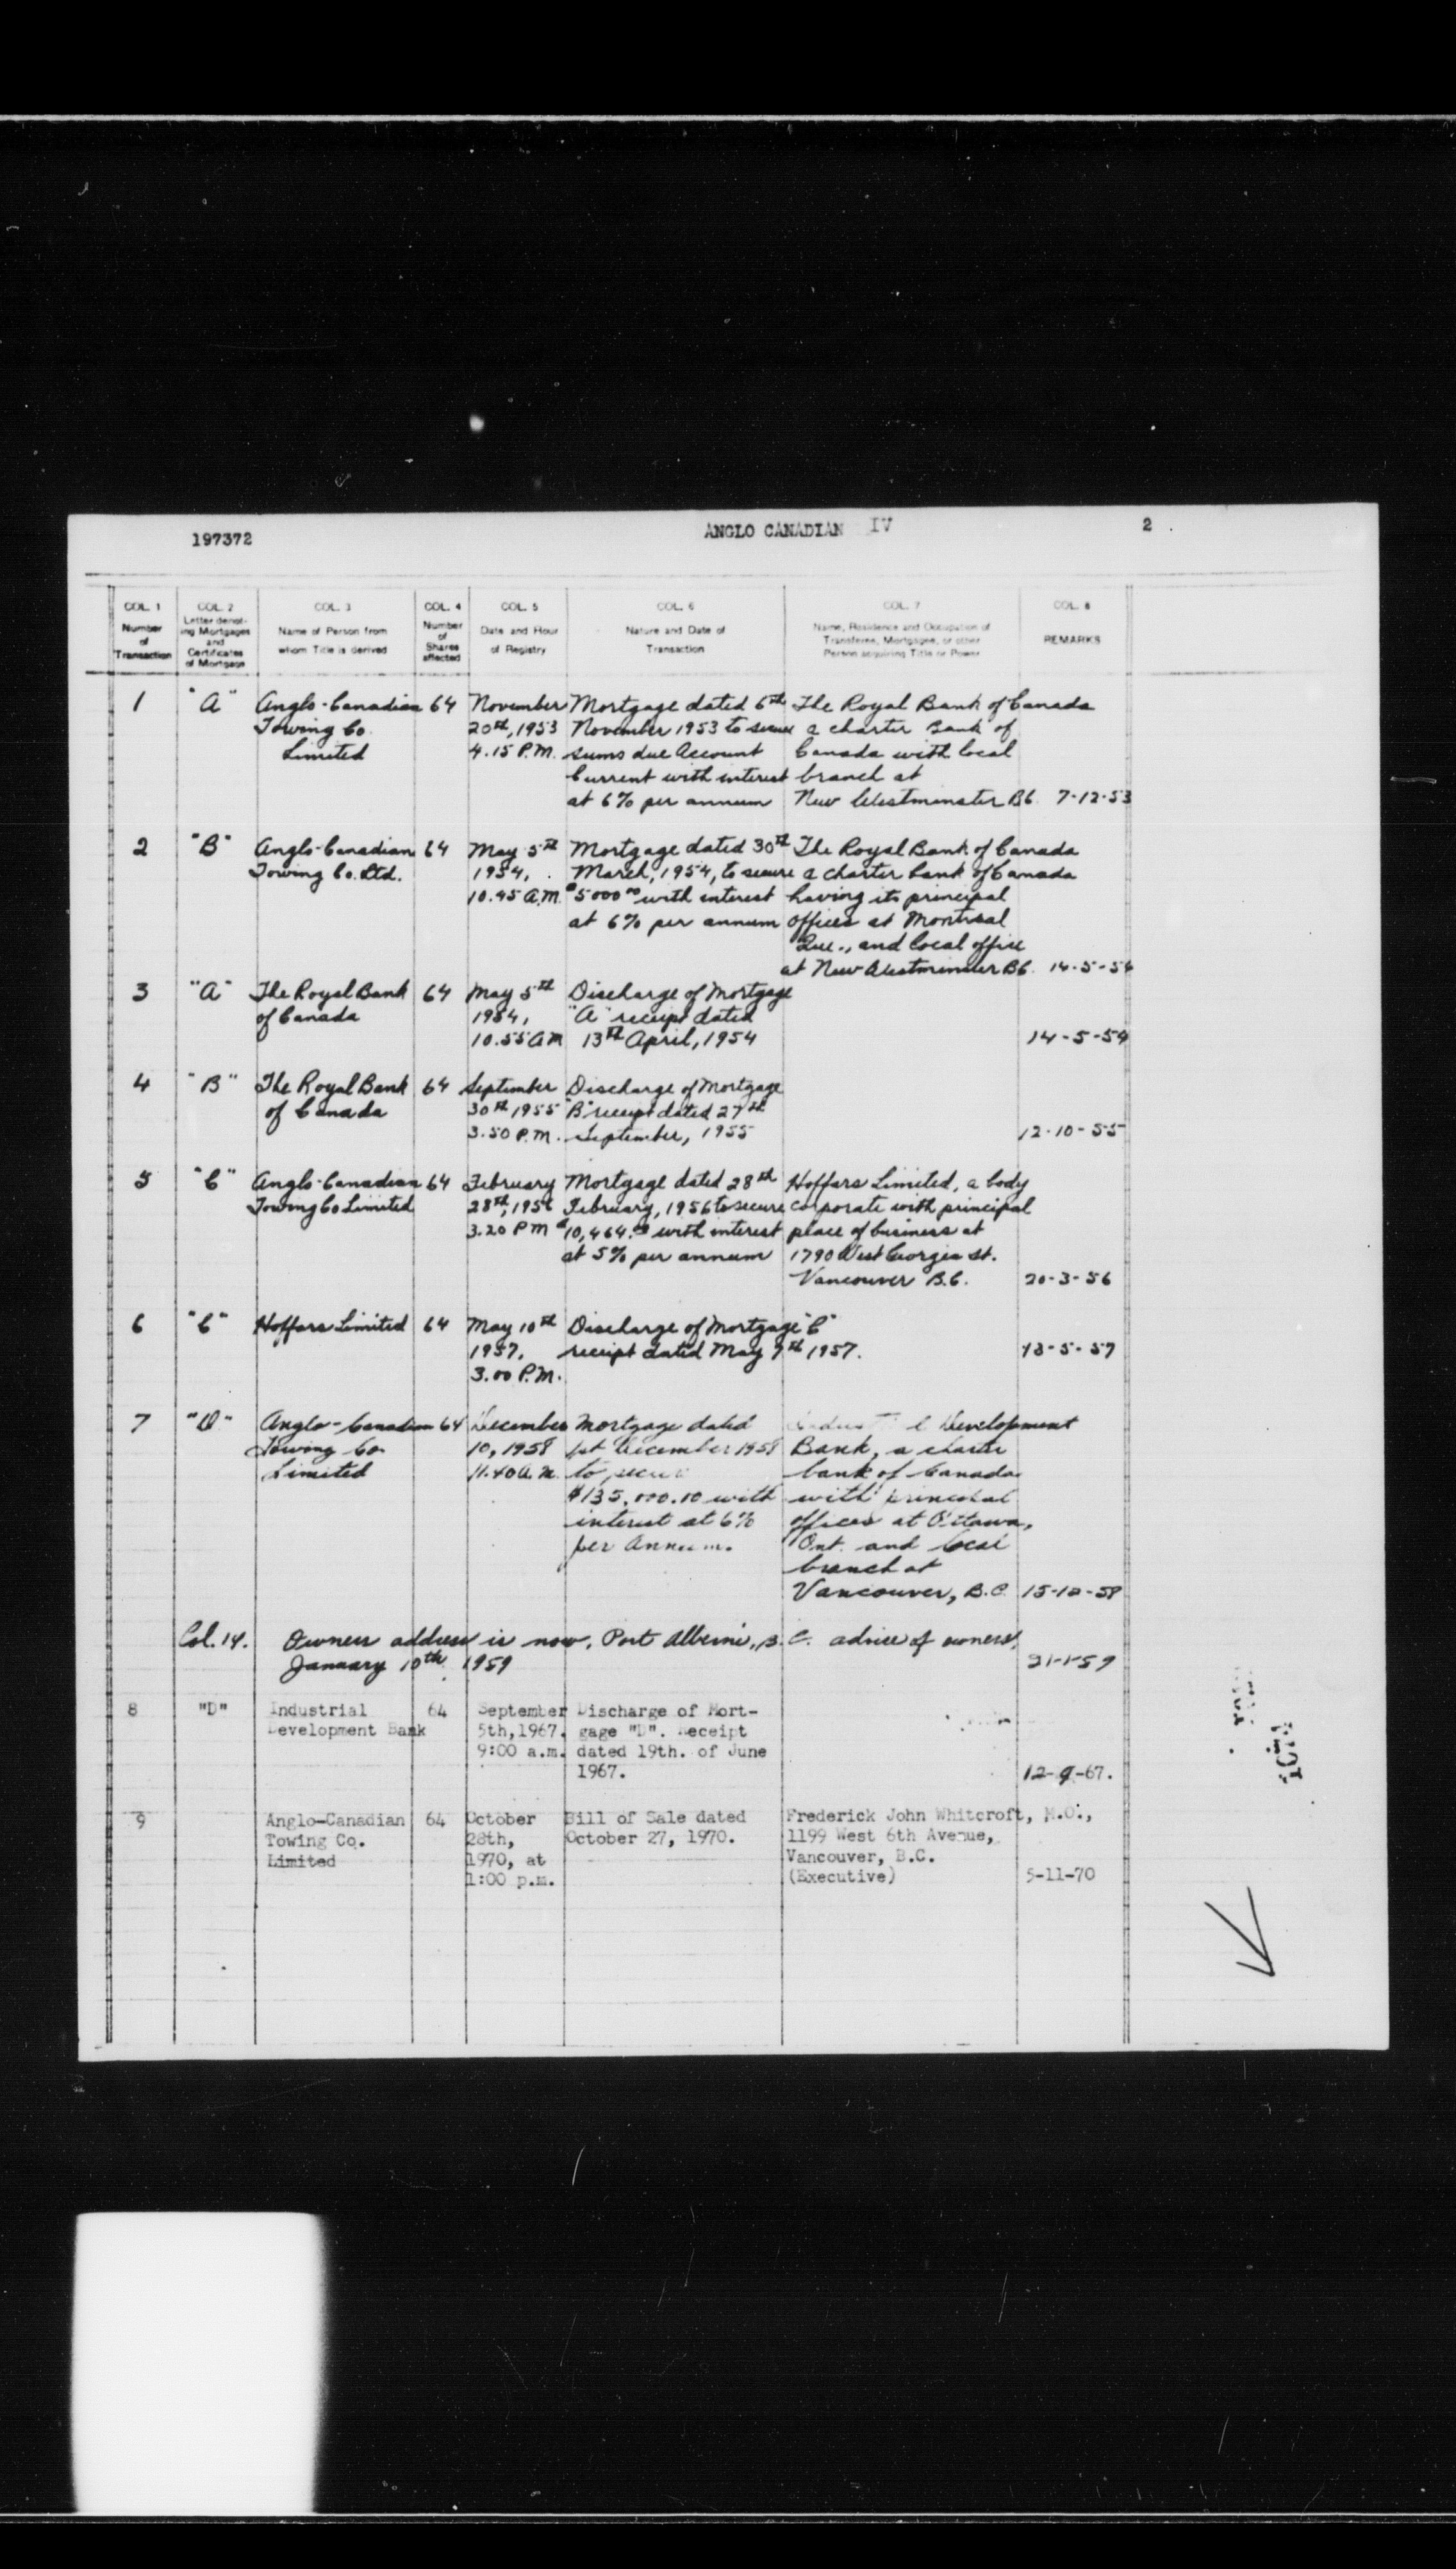 197372
ANGLO CANADIAN IV
2
COL. 1 Number of Transaction
COL. 2 Letter denoting Mortgages and Certificates of Mortgage
COL. 3 Name of Person from whom Title is derived
COL. 4 Number of Shares affected
COL. 5 Date and Hour of Registry
COL. 6 Nature and Date of Transaction
COL. 7 Name, Residence and Occupation of Transferee, Mortgagee, or other Person acquiring Title or Power
COL. 8 REMARKS
1 "A" Anglo-Canadian 64 November Mortgage dated 6th The Royal Bank of Canada
Towing Co. 20th, 1953 November 1953 to secure a charter Bank of
Limited 4.15 P.M. sums due Account Canada with local
Current with interest branch at
at 6% per annum New Westminster B.C. 7-12-53
2 "B" Anglo-Canadian 64 May 5th Mortgage dated 30th The Royal Bank of Canada
Towing Co. Ltd. 1954, March, 1954, to secure a charter bank of Canada
10.45 A.M. $5000.00 with interest having its principal
at 6% per annum offices at Montreal
Que., and local office
at New Westminster B.C. 14-5-54
3 "A" The Royal Bank 64 May 5th Discharge of Mortgage
of Canada 1954, "A" receipt dated
10.55 AM 13th April, 1954 14-5-54
4 "B" The Royal Bank 64 September Discharge of Mortgage
of Canada 30th 1955 "B" receipt dated 27th
3.50 P.M. September, 1955 12-10-55
5 "C" Anglo-Canadian 64 February Mortgage dated 28th Hoffars Limited, a body
Towing Co Limited 28th, 1956 February, 1956 to secure corporate with principal
3.20 PM $10,464. with interest place of business at
at 5% per annum 1790 West Georgia St.
Vancouver B.C. 20-3-56
6 "C" Hoffars Limited 64 May 10th Discharge of Mortgage "C"
1957, receipt dated May 7th 1957.
3.00 P.M. 13-5-57
7 "D" Anglo-Canadian 64 December Mortgage dated Development
Towing Co. 10, 1958 1st December 1958 Bank, a charter
Limited 11.40 a.m. to secure bank of Canada
$135,000.00 with with principal
interest at 6% offices at Ottawa,
per Annum. Ont. and local
branch at
Vancouver, B.C. 15-12-58
Col. 14. Owners address is now, Port Alberni, B.C. advice of owners,
January 10th 1959 21-1-59
8 "D" Industrial 64 September Discharge of Mort-
Development Bank 5th,1967. gage "D". Receipt
9:00 a.m. dated 19th. of June
1967. 12-9-67.
9 Anglo-Canadian 64 October Bill of Sale dated Frederick John Whitcroft, M.O.,
Towing Co. 28th, October 27, 1970. 1199 West 6th Avenue,
Limited 1970, at Vancouver, B.C.
1:00 p.m. (Executive) 5-11-70